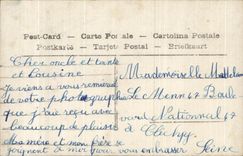 Post-Card - Carte Postale - Cartolina Postale
Postkarte - Tarjeta Postal - Briefkaart
Cher oncle et tante
et cousine
Je viens a vous remercier
de votre photographie
que j'ai reçu avec
beaucoup de plaisir
Ma mère et mon père se
joignent a moi pour vous embrasser
Mademoiselle
Le Menn 67 Boule
vard National 67
a Clichy
Seine